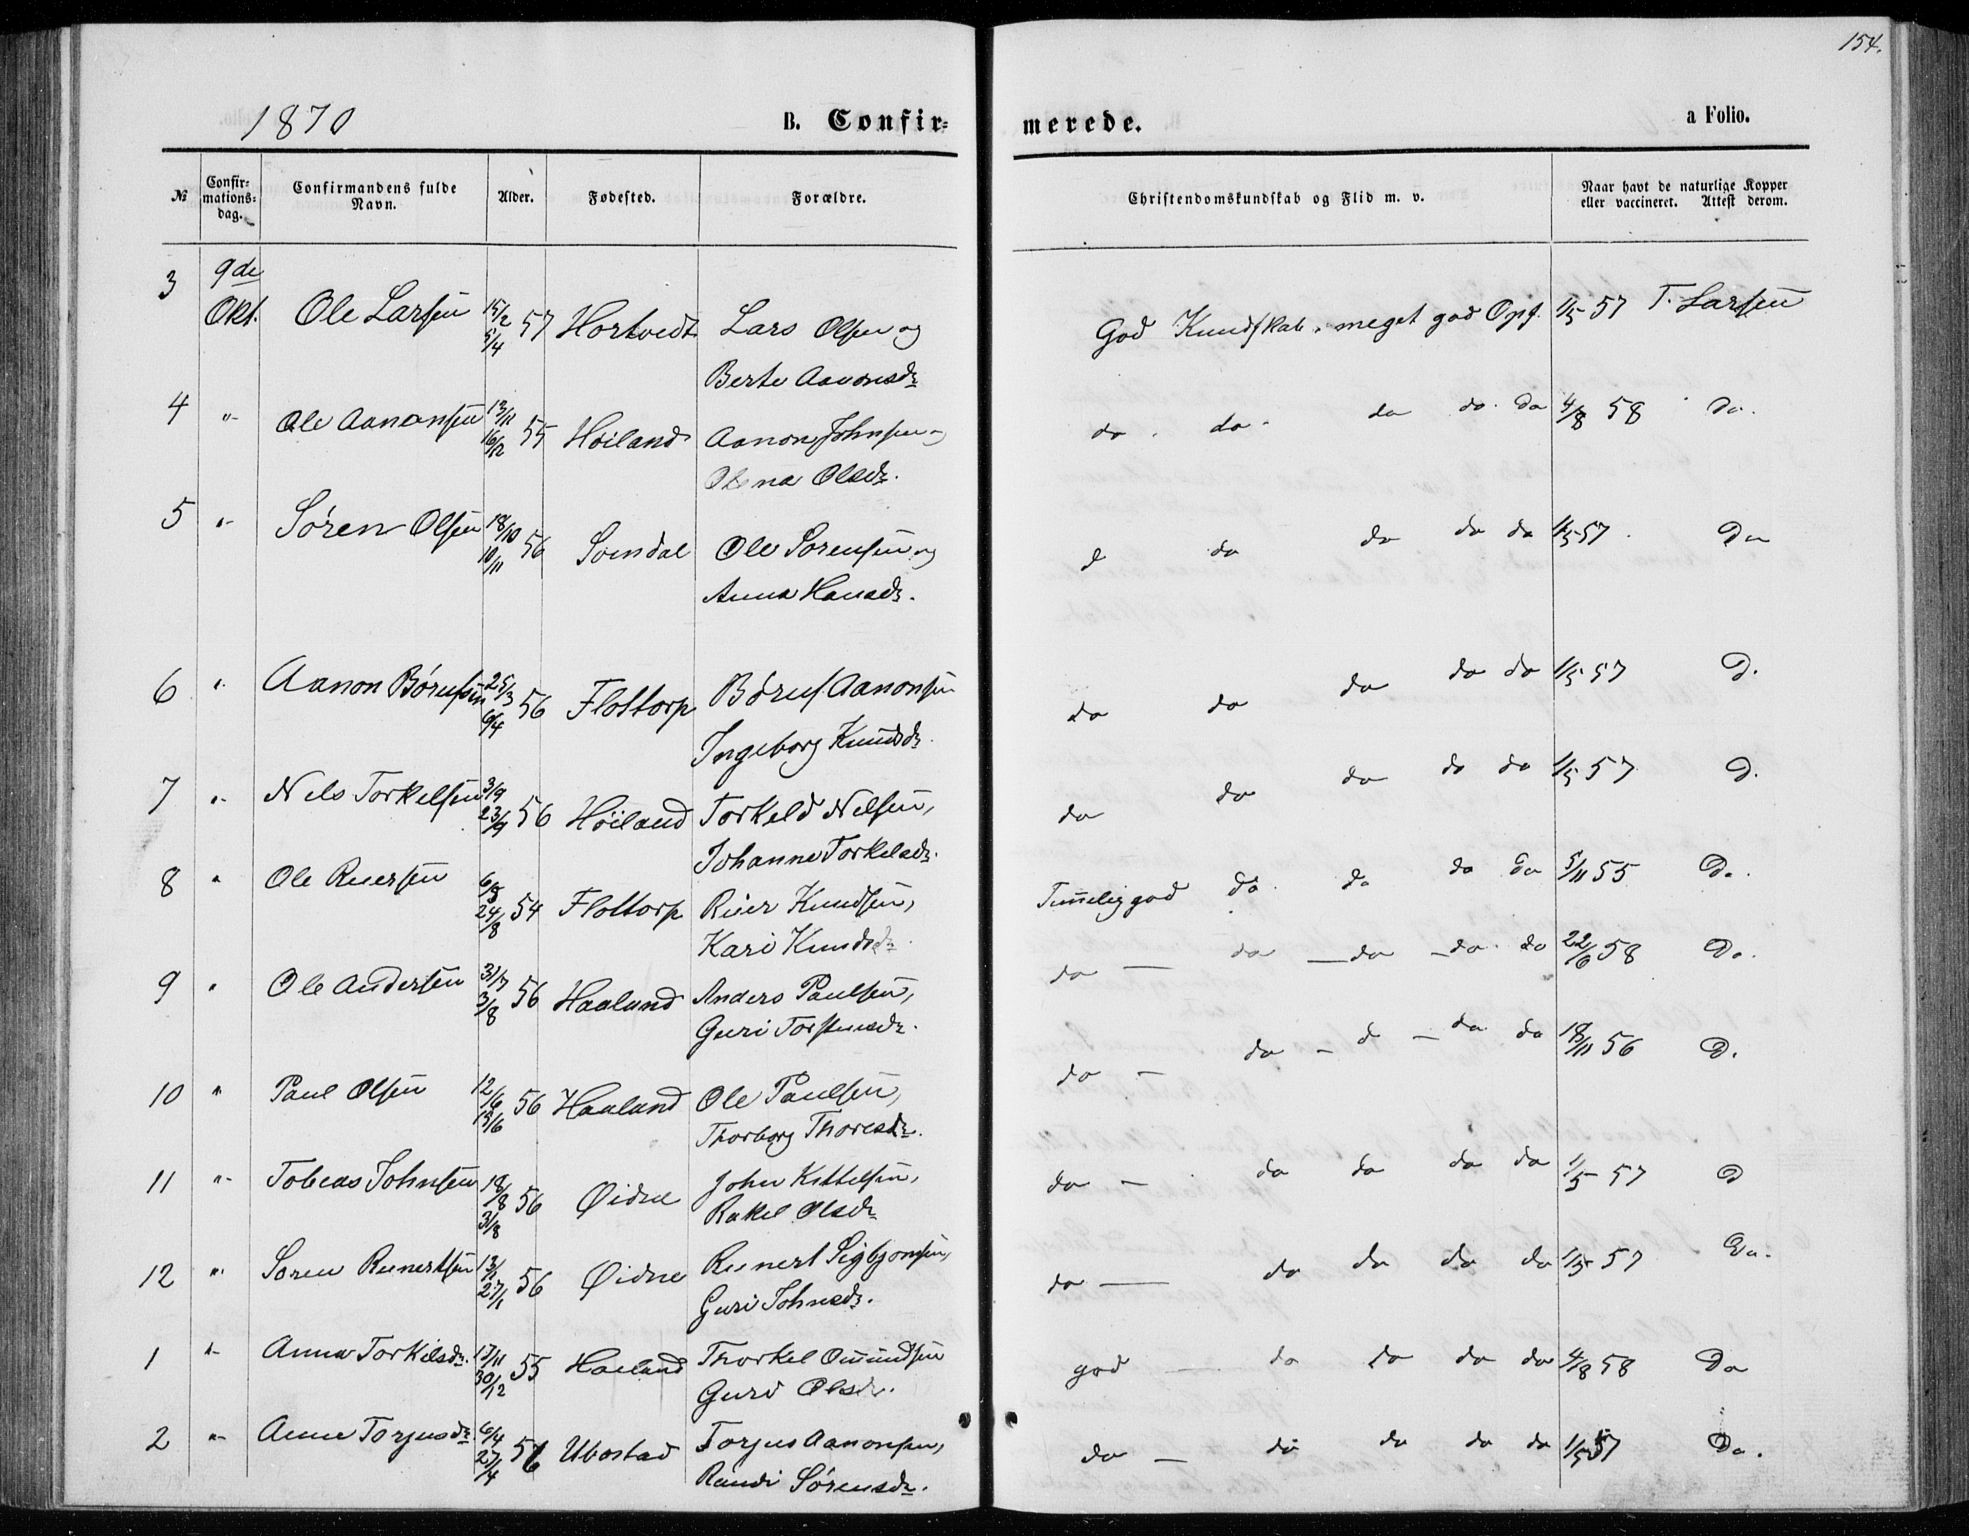 154.
1870
B. Confir-
merede.
a Folio.
№
Confir-
mations-
dag.
Confirmandens fulde
Navn.
Alder.
Fødested.
Forældre.
Christendomskundskab og Flid m. v.
Naar havt de naturlige Kopper
eller vaccineret. Attest derom.
3 9de
Okt. Ole Larsen 15/2 5/4 57 Hortvedt Lars Olsen og
Berte Aanonsdr
God Kundskab. meget god Opf. 1/5 57 T. Larsen
4 " Ole Aanonsen 13/11 16/12 55 Höiland Aanon Johnsen og
Olena Olsdr.
do. do. do do. do 4/8 58 Do.
5 " Sören Olsen 18/10 10/11 56 Soendal Ole Sorensen og
Anna Hansdr.
d do do do do 1/5 57. Do
6 " Aanon Börufsen 25/3 6/4 56 Flottorp Böruf Aanonsen
Ingeborg Knudsdr.
do do do do do 1/5 57 D.
7 " Nels Torkelsen 3/9 23/9 56 Höiland Torkeld Nelsen,
Johanne Torkelsdr.
do do do do do 1/5 57 D.
8 " Ole Reiersen 6/8 24/8 54 Flottorp Reier Knudsen,
Kari Knudsdr.
Temelig god do do do do 5/11 55 Do.
9 " Ole Andersen 31/7 3/8 56 Haaland Anders Paulsen,
Guri Torstensdr.
do — do — do — do do 22/6 58 Do.
10 " Paul Olsen 12/6 13/6 56 Haaland Ole Paulsen,
Thorborg Thoresdr.
do — do — d — do do 18/11 56 D.
11 " Tobias Johnsen 18/8 31/8 56 Øidne John Kittelsen,
Rakel Olsdr
do — do do do do 1/5 57 D
12 " Soren Reinertsen 13/1 27/1 56 Øidne Reinert Sigbjonsen,
Guri Johnsdr.
do — do do do do 1/5 57 Do.
1 " Anna Torkilsdr. 17/11 30/12 55 Hoiland Thorkel Omundsen
Guri Olsdr.
god — do do do do 4/8 58 Do
2 " Anne Torjusdr 6/4 27/4 56 Ubostad Torjus Aanonsen,
Randi Sörensdr.
do — do do do do 1/5 57 Do.